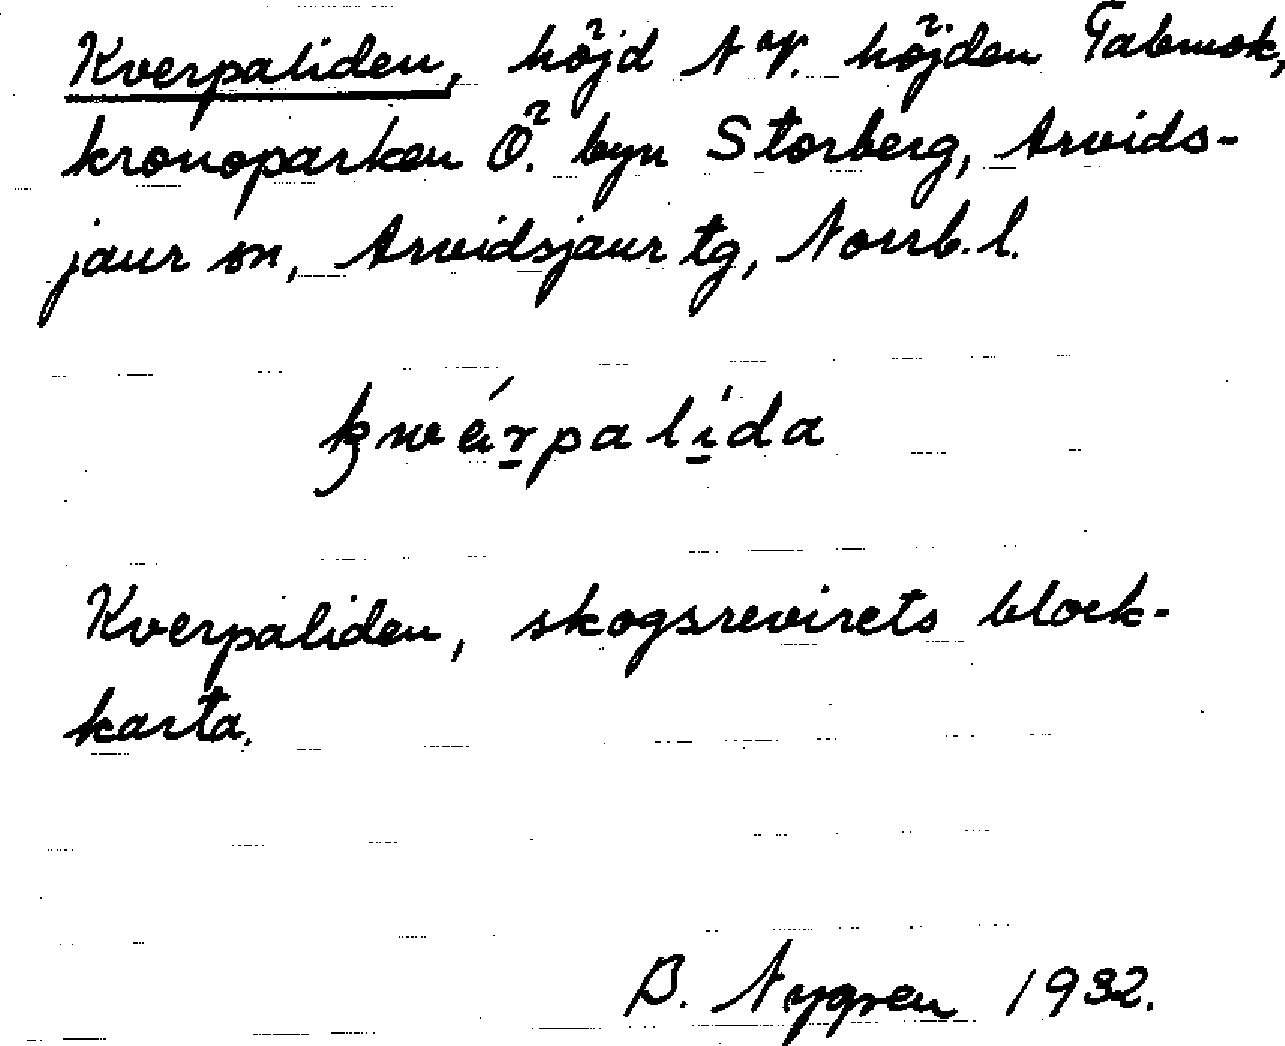 Kverpaliden, höjd NV. höjden Tabmok,
kronoparken Ö. byn Storberg, Arvids-
jaur sn, Arvidsjaur tg, Norrb. l.
kwérpalída
Kverpaliden, skogsrevirets block-
karta.
B. Nygren 1932.